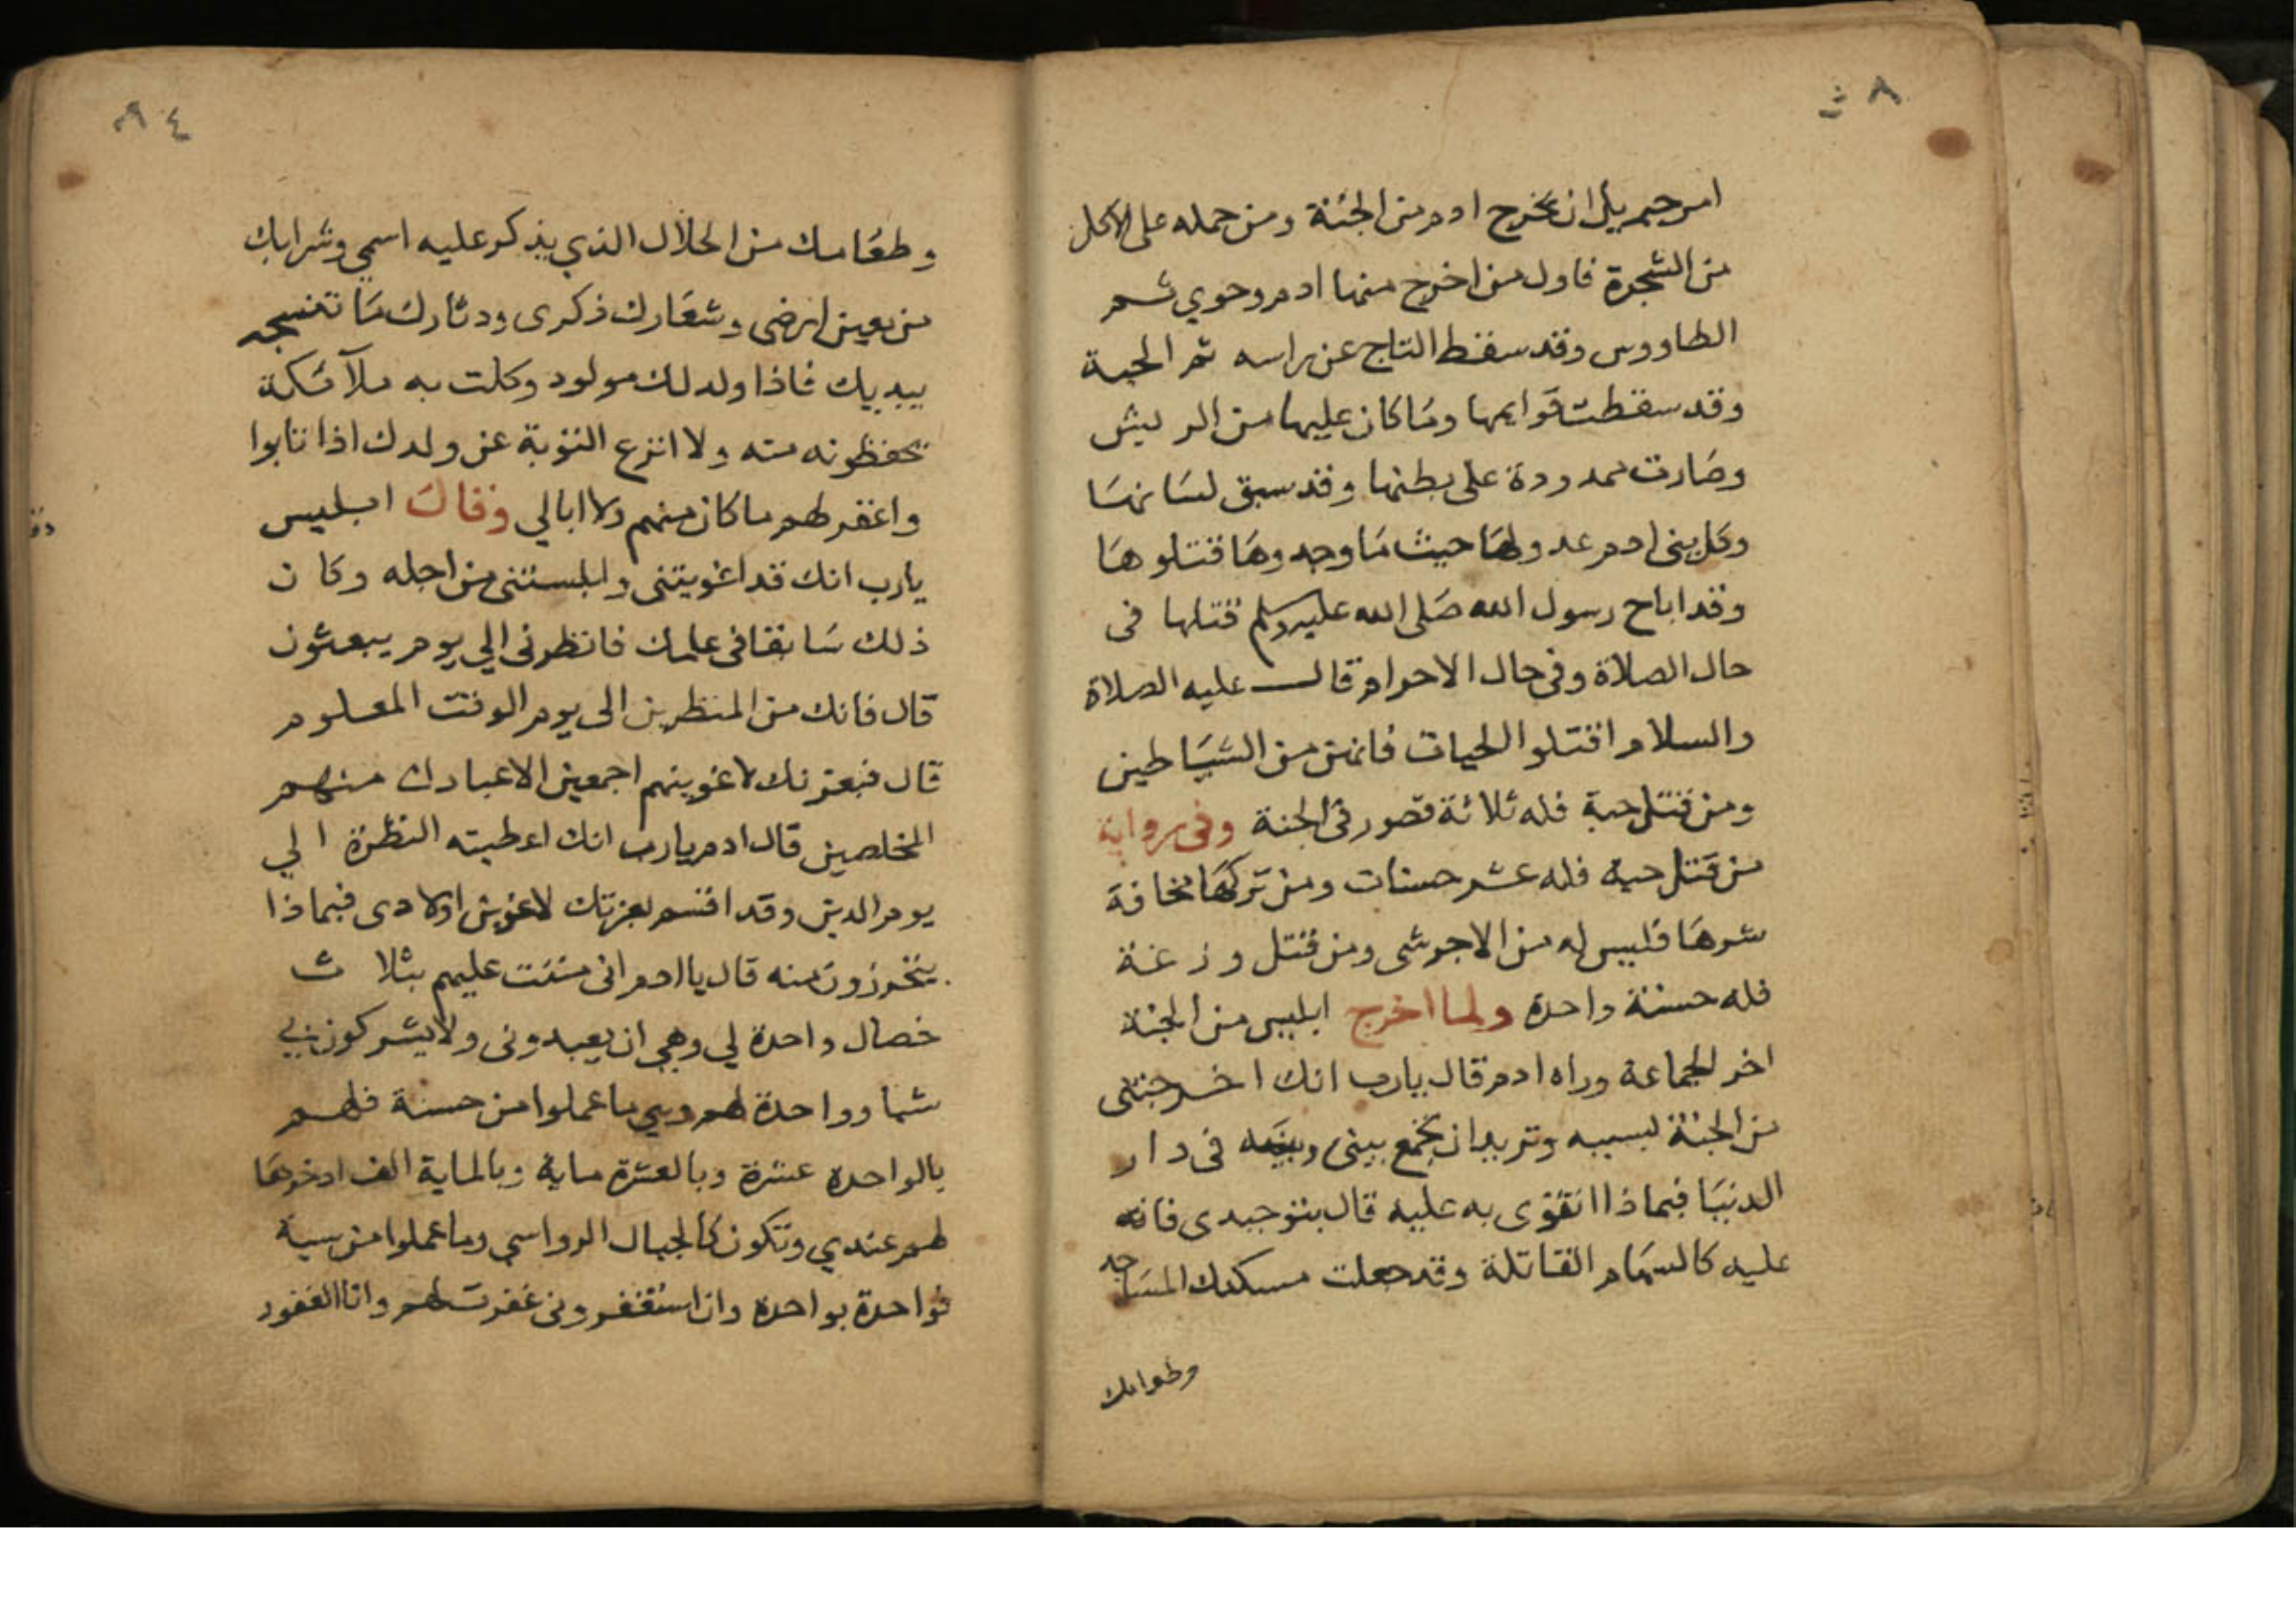 امر جبريل ان يخرج ادم من الجنة ومن حمله على الاكل
من الشجرة فاول من اخرج منها ادم وحوي ثم
الطاووس وقد سقط التاج عن راسه ثم الحية
وقد سقطت قوايمها وما كان عليها من الريش
وصارت ممدودة على بطنها وقد سبق لسانها
وكل بنى ادم عدو لها حيث ما وجدوها قتلوها
وقد اباح رسول الله صلى الله عليه وسلم قتلها فى
حال الصلاة وفى حال الاحرام وقال عليه الصلاة
والسلام اقتلوا الحيات فانهن من الشياطين
ومن قتل حية فله ثلاثة قصور فى الجنة وفى رواية
من قتل حية فله عشر حسنات ومن تركها مخافة
شرها فليس له من الاجر شى ومن قتل وزغة
فله حسنة واحدة ولما اخرج ابليس من الجنة
اخر الجماعة وراه ادم قال يارب انك اخرجتنى
من الجنة بسببه وتريد ان تجمع بينى وبينه فى دار
الدنيا فبماذا اتقوى به عليه قال بتوحيدى فانه
عليه كالسهام القاتلة وقد جعلت مسكنك المساجد
وطعامك
وطعامك من الحلال الذي يذكر عليه اسمي وشرابك
من معين ارضى وشعارك ذكرى ودثارك ما تنسجه
بيديك فاذا ولد لك مولود وكلت به ملآئكة
يحفظونه منه ولا انزع التوبة عن ولدك اذا تابوا
واغفر لهم ما كان منهم ولا ابالي وقال ابليس
يارب انك قد اغويتنى وابلستنى من اجله وكان
ذلك سابقا فى علمك فانظرنى الي يوم يبعثون
قال فانك من المنظرين الى يوم الوقت المعلوم
قال فبعزتك لاغوينهم اجمعين الا عبادك منهم
المخلصين قال ادم يارب انك اعطيته النظرة الي
يوم الدين وقد اقسم بعزتك لاغوين اولادى فبماذا
يتحرزون منه قال يا ادم انى مننت عليهم بثلاث
خصال واحدة لي وهي ان يعبدونى ولا يشركون بي
شيا وواحدة لهم وهي ما عملوا من حسنة فلهم
بالواحدة عشرة وبالعشرة ماية وبالماية الف ادخرها
لهم عندي وتكون كالجبال الرواسي وما عملوا من سية
فواحدة بواحدة وان استغفرونى غفرت لهم وانا الغفور